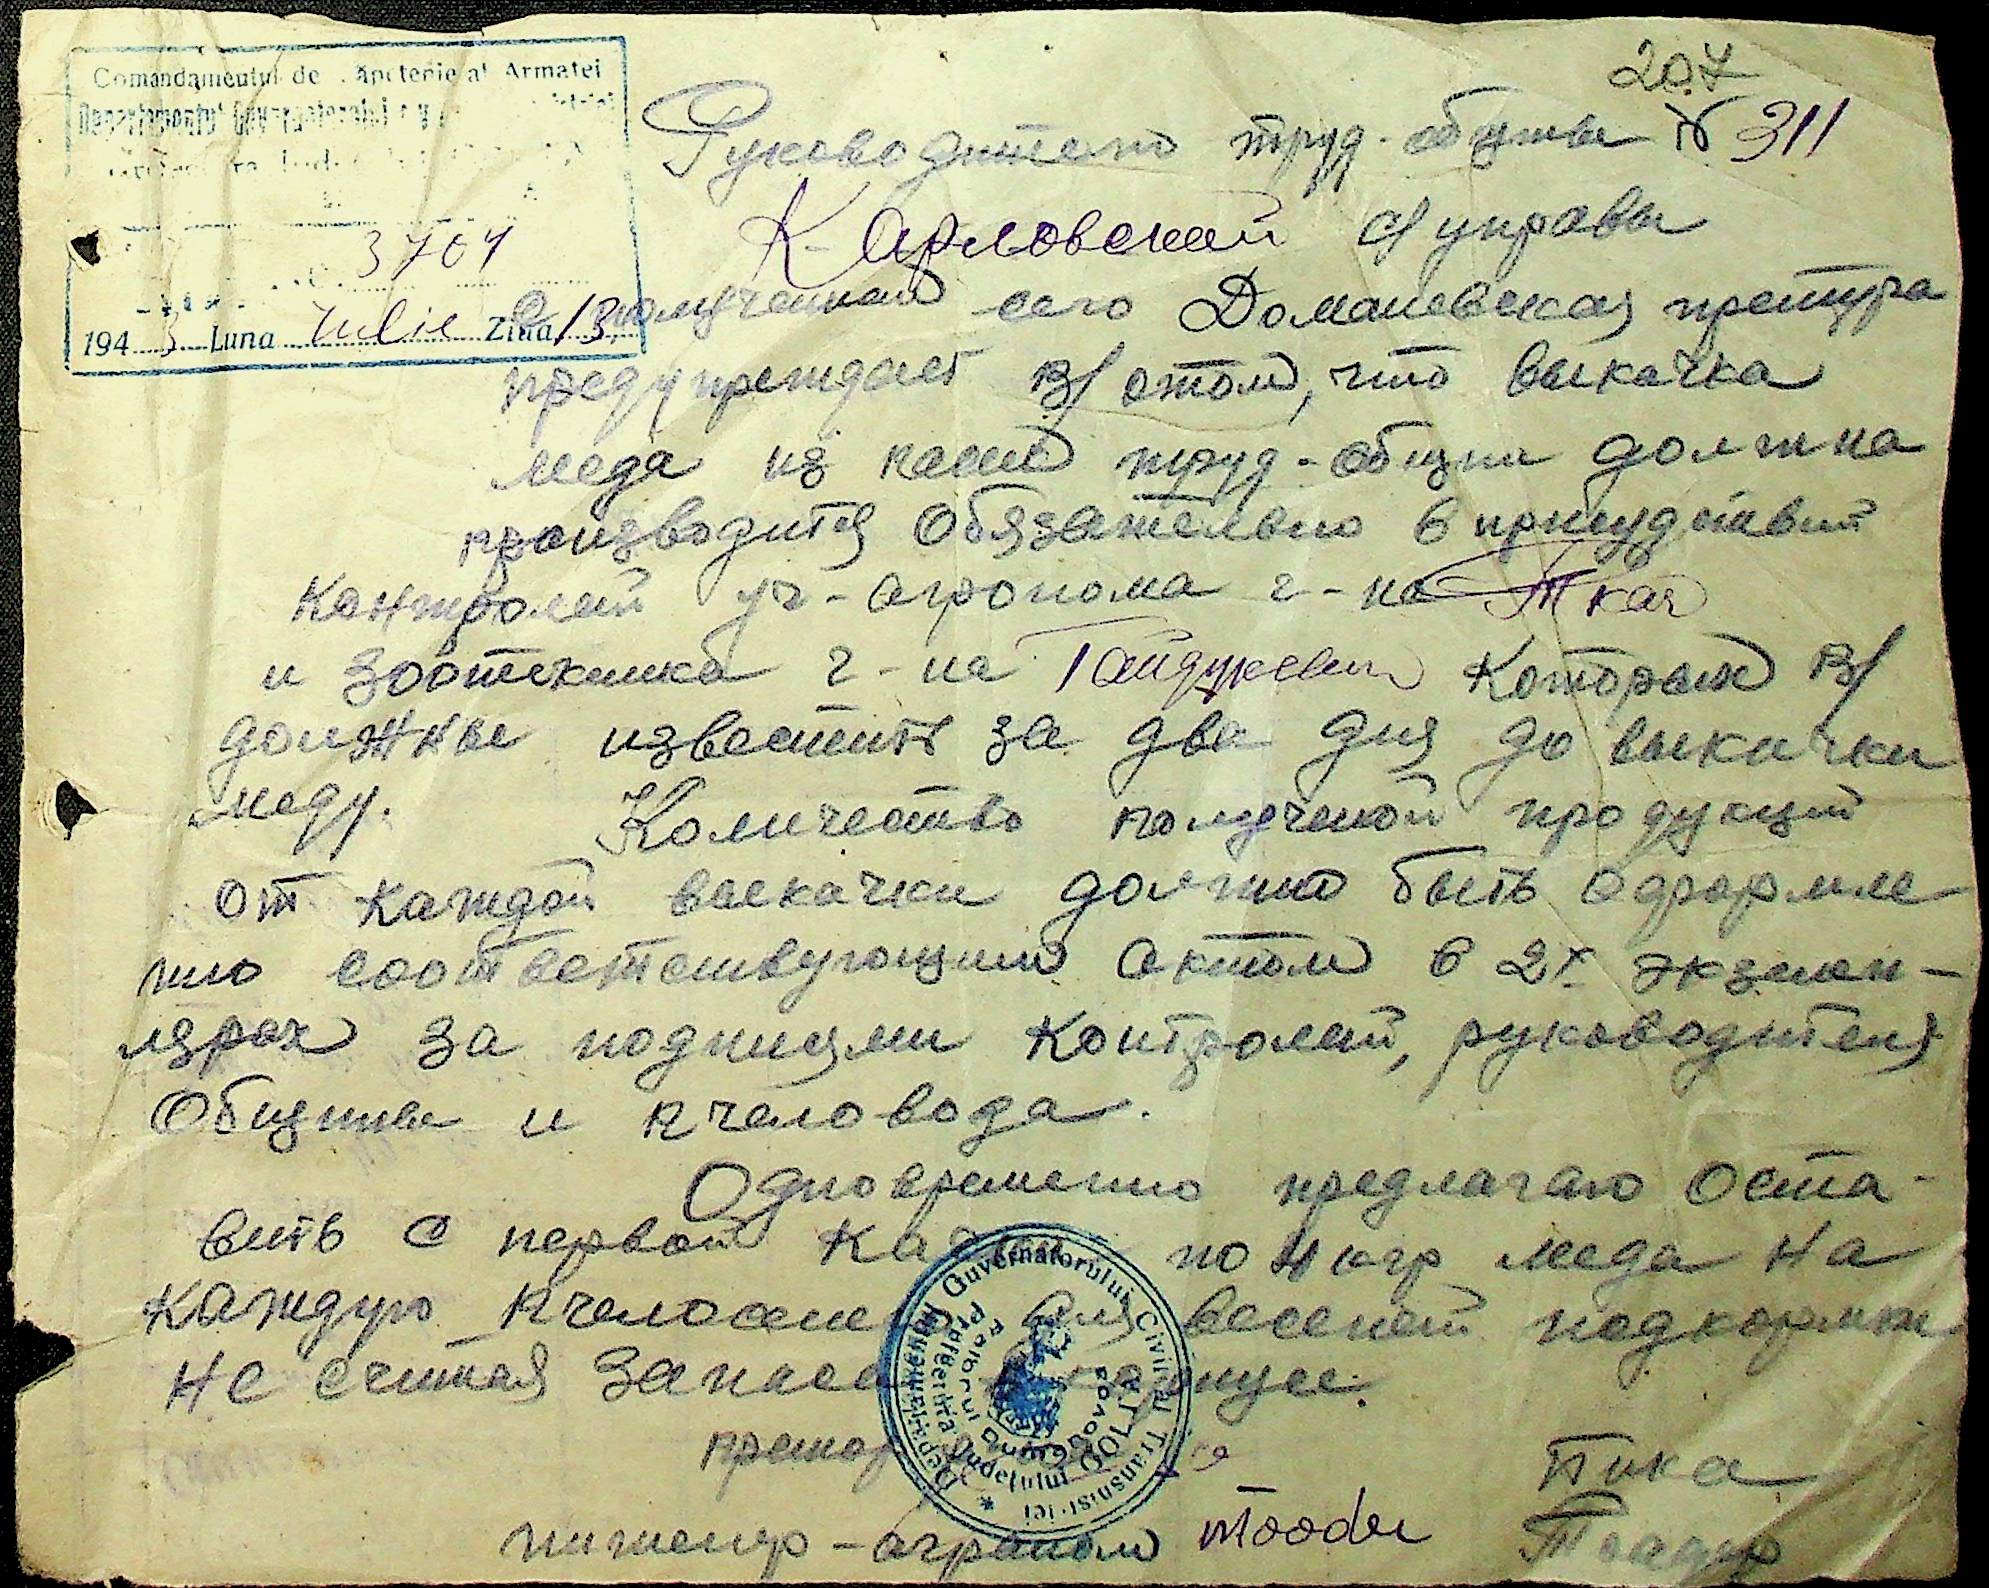 207
Comandamentul de Căpetenie al Armatei
Departamentul Guvernatorului
3704
194 3 Luna Iulie Ziua 13
Руководителю труд-общины № 311
Карловской с/управы
С получением сего Доманевская претура
предупреждает в/ о том, что выкачка
меда из вашей труд-общины должна
производится обязательно в присудствии
контролей уч-агронома г-на Ткач
и зоотехника г-на Гайдукевич которых в/
должны известить за два дня до выкачки
меду. Количество полученой продукции
от каждой выкачки должно быть оформле
но соответствующим актом в 2х экземп-
лярах за подписями контролей, руководителя
общины и пчеловода.
Одновременно предлагаю оста-
вить с первой качки по 4 кгр меда на
каждую пчелосемью для весеней подкормки
не считая запаса в корпусе.
претор Пика
инженер-агроном Toader Тоадер
Departamentul Guvernatorului Civil al Transnistriei
Prefectura Judeţului GOLTA
Raionul Dumanovca